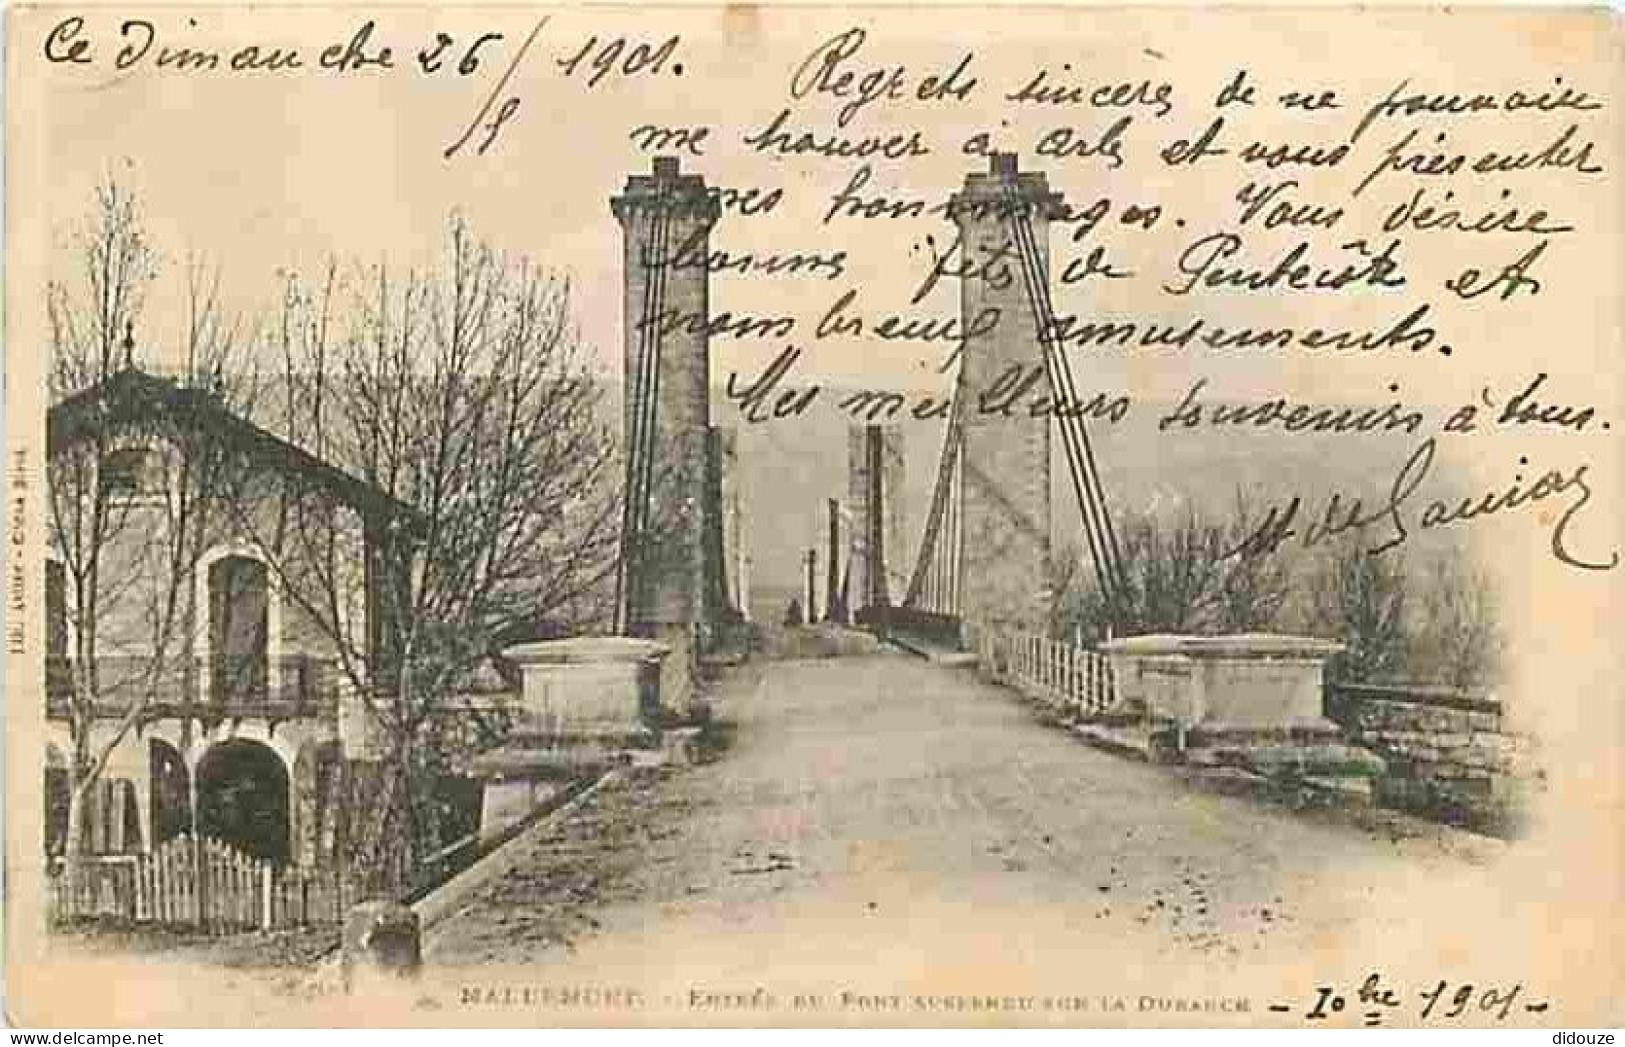 Ce Dimanche 26/5 1901.
Regrets sincères de ne pouvoir
me trouver à Arles et vous présenter
mes hommages. Vous désire
bonnes fêtes de Pentecôte et
nombreux amusements.
Mes meilleurs souvenirs à tous.
M de
MALLEMORT. - ENTRÉE DU PONT SUSPENDU SUR LA DURANCE
- Xbre 1901 -
delcampe.net
didouze